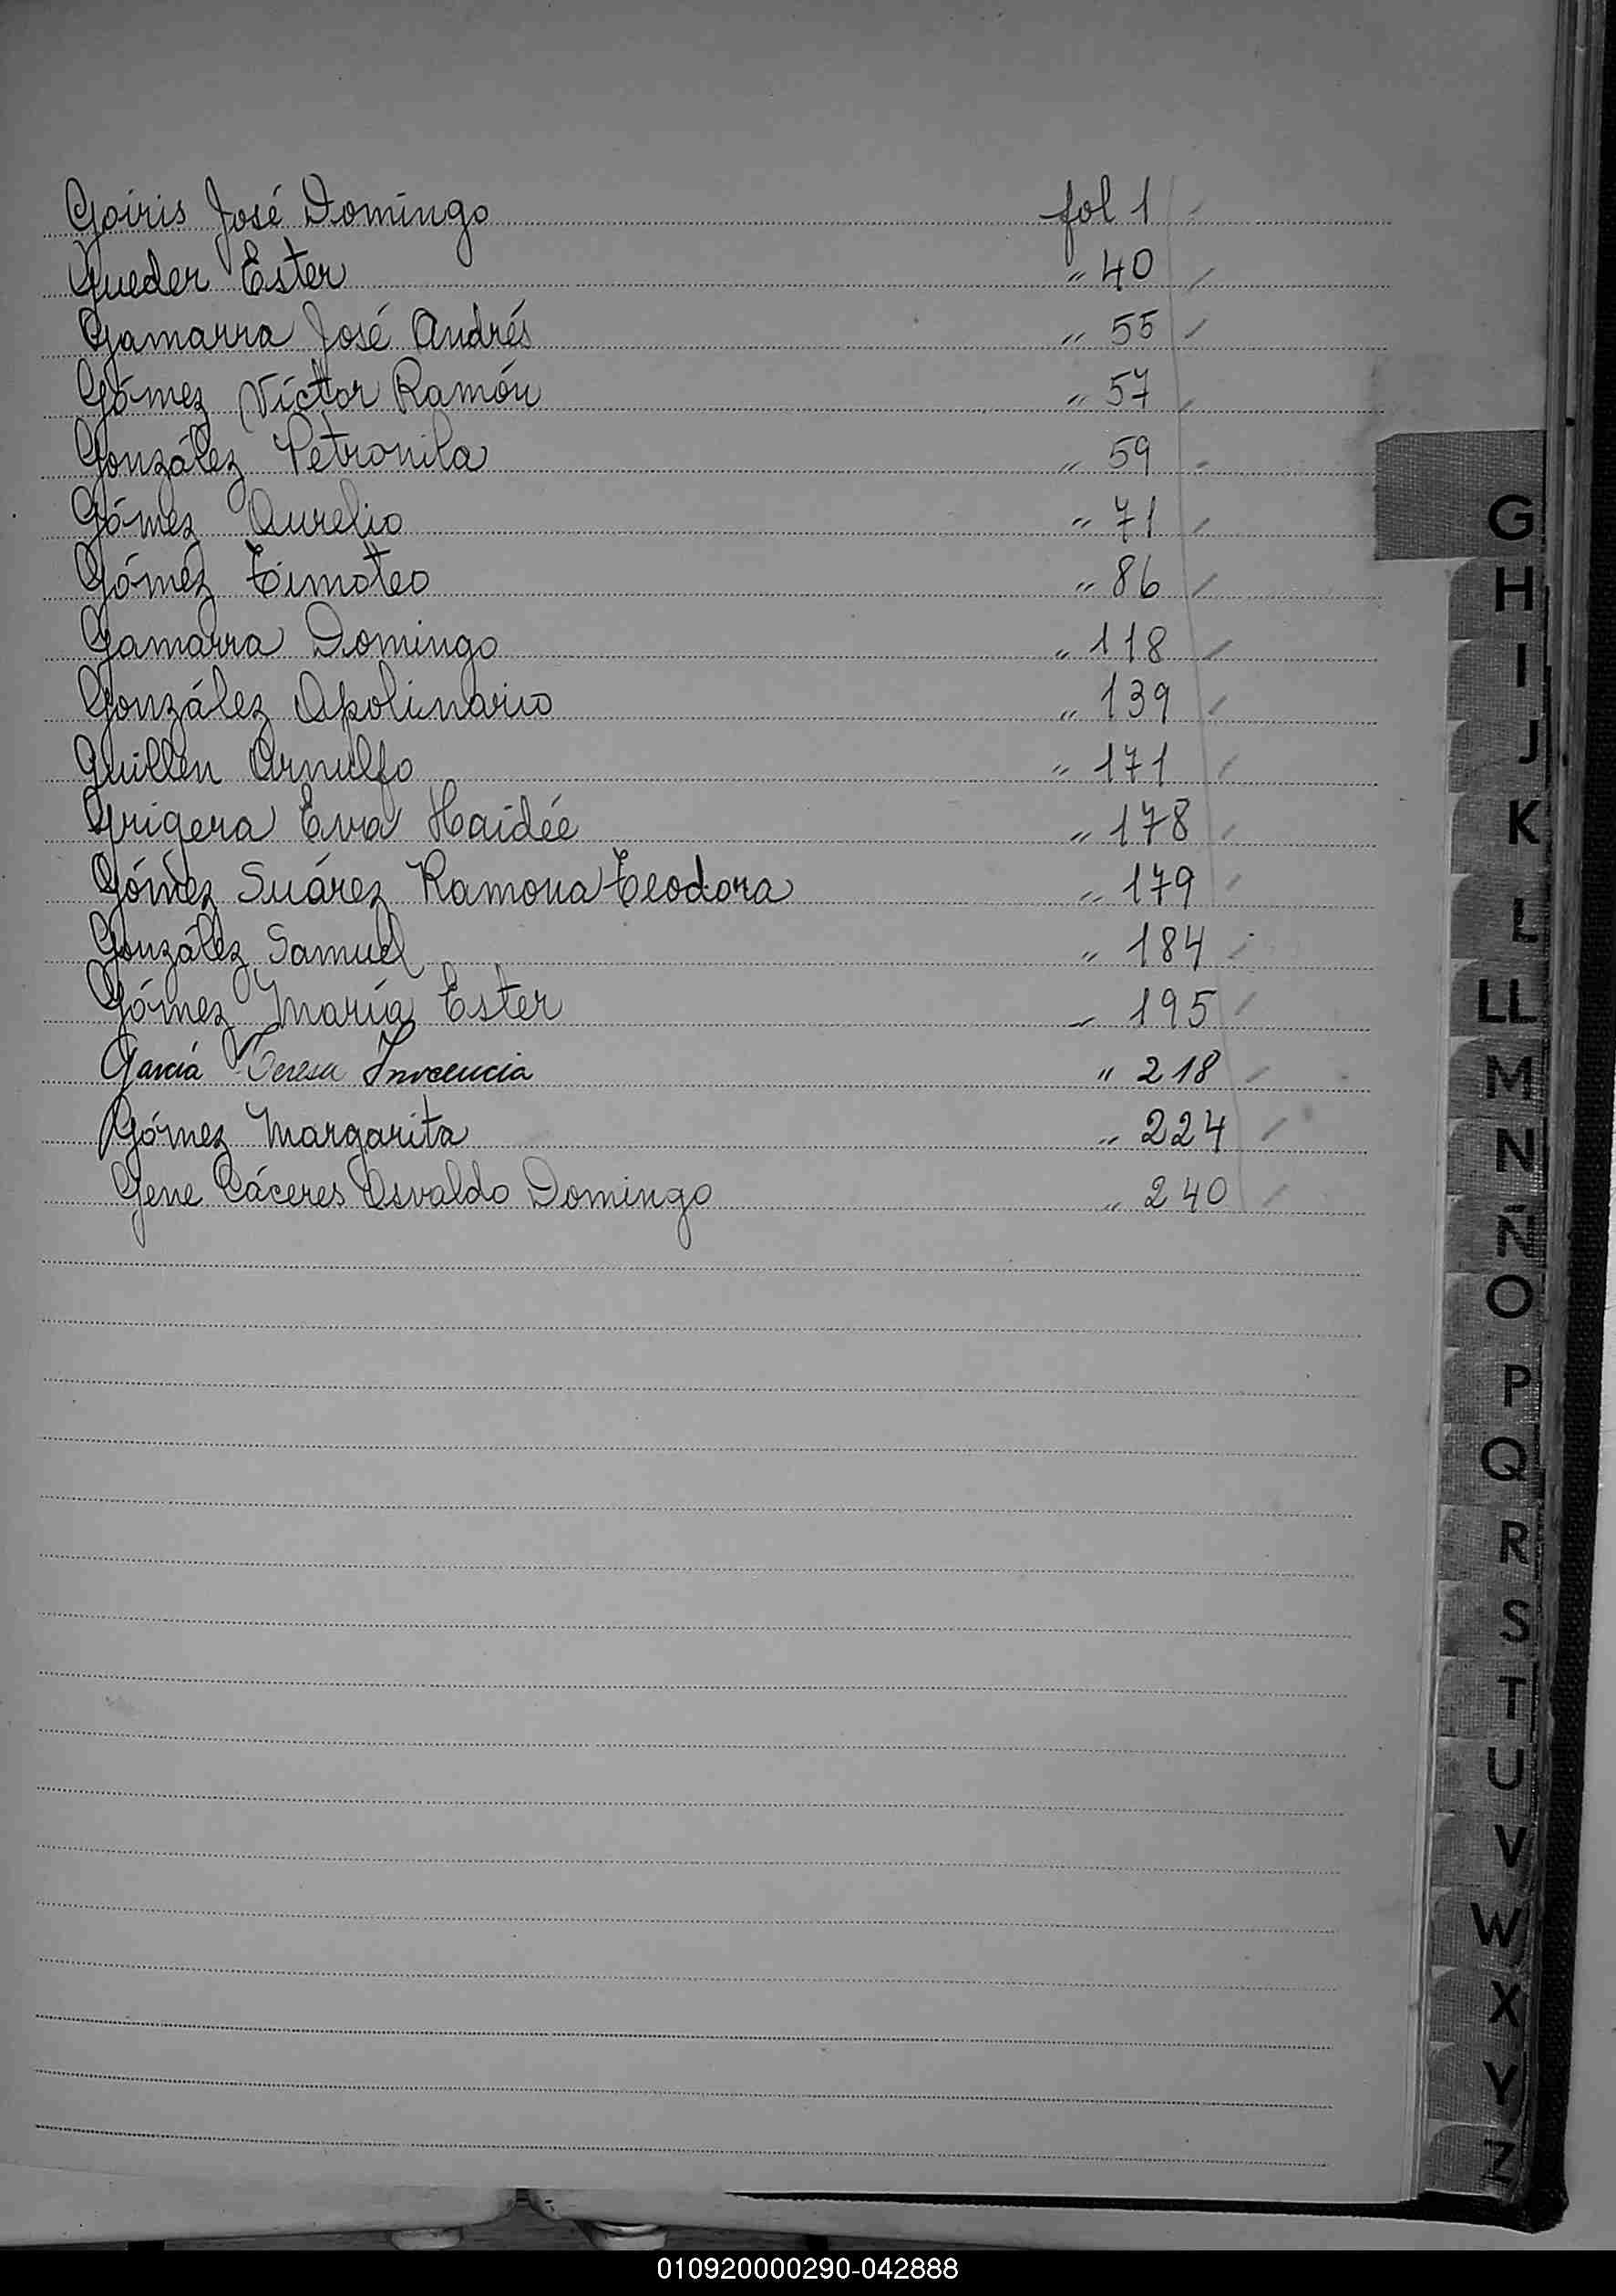 Goiris José Domingo fol 1
Gueder Ester " 40
Gamarra José Andrés " 55
Gómez Víctor Ramón " 57
González Petronila " 59
Gómez Aurelio " 71
Gómez Timoteo " 86
Gamarra Domingo " 118
González Apolinario " 139
Guillén Arnulfo " 171
Grigera Eva Haidée " 178
Gómez Suárez Ramona Teodora " 179
González Samuel " 184
Gómez María Ester " 195
García Teresa Inocencia " 218
Gómez Margarita " 224
Gene Cáceres Osvaldo Domingo " 240
G
H
I
J
K
L
LL
M
N
Ñ
O
P
Q
R
S
T
U
V
W
X
Y
Z
010920000290-042888